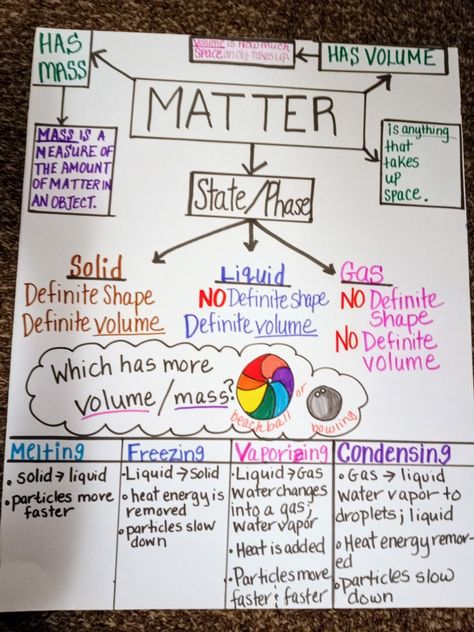 HAS
MASS
VOLUME IS HOW MUCH
SPACE an obj. takes up.
HAS VOLUME
MATTER
MASS IS A
MEASURE OF
THE AMOUNT
OF MATTER IN
AN OBJECT.
is anything
that
takes
up
space.
State/Phase
Solid
Definite Shape
Definite volume
Liquid
NO Definite shape
Definite volume
Gas
NO Definite
Shape
NO Definite
volume
Which has more
volume/mass?
beachball or bowling
Melting
• solid → liquid
• particles move
faster
Freezing
-Liquid → Solid
• heat energy is
removed
• particles slow
down
Vaporizing
• Liquid → Gas
Water changes
into a gas;
water vapor
• Heat is added
• Particles move
faster & faster
Condensing
• Gas → liquid
water vapor to
droplets; liquid
• Heat energy remov-
ed
• Particles slow
down